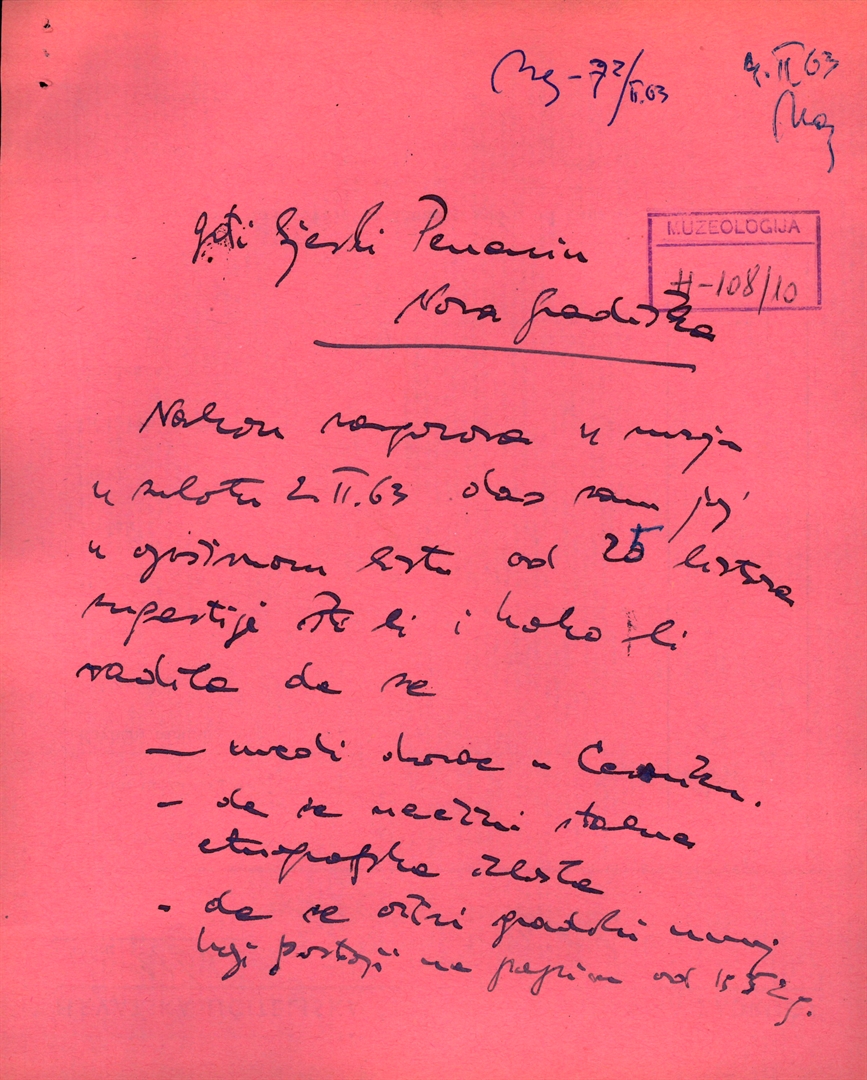 Mg-72/II.63
4.II 63
Maj
MUZEOLOGIJA
H-108/10
gđi Ljerki Penavin
Nova Gradiška
Nakon razgovora u muzeju
u subotu 2.II.63 dao sam joj
u opširnom listu od 25 listova
sugestije što bi i kako bi
radila da se
— uredi dvorac u Cerniku.
- da se načini stalna
etnografska zbirka
- da se oživi gradski muzej
koji postoji na papiru od 1952 g.